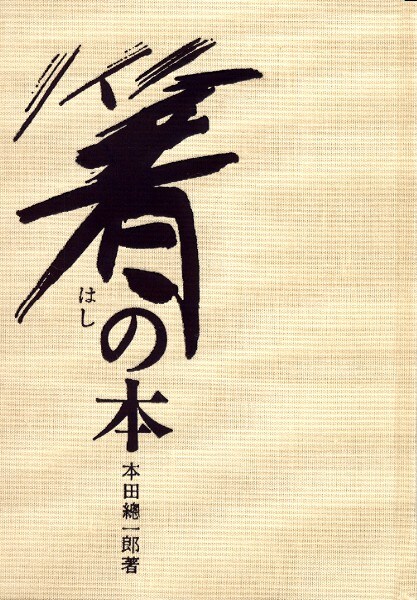 箸の本
はし
本田總一郎著